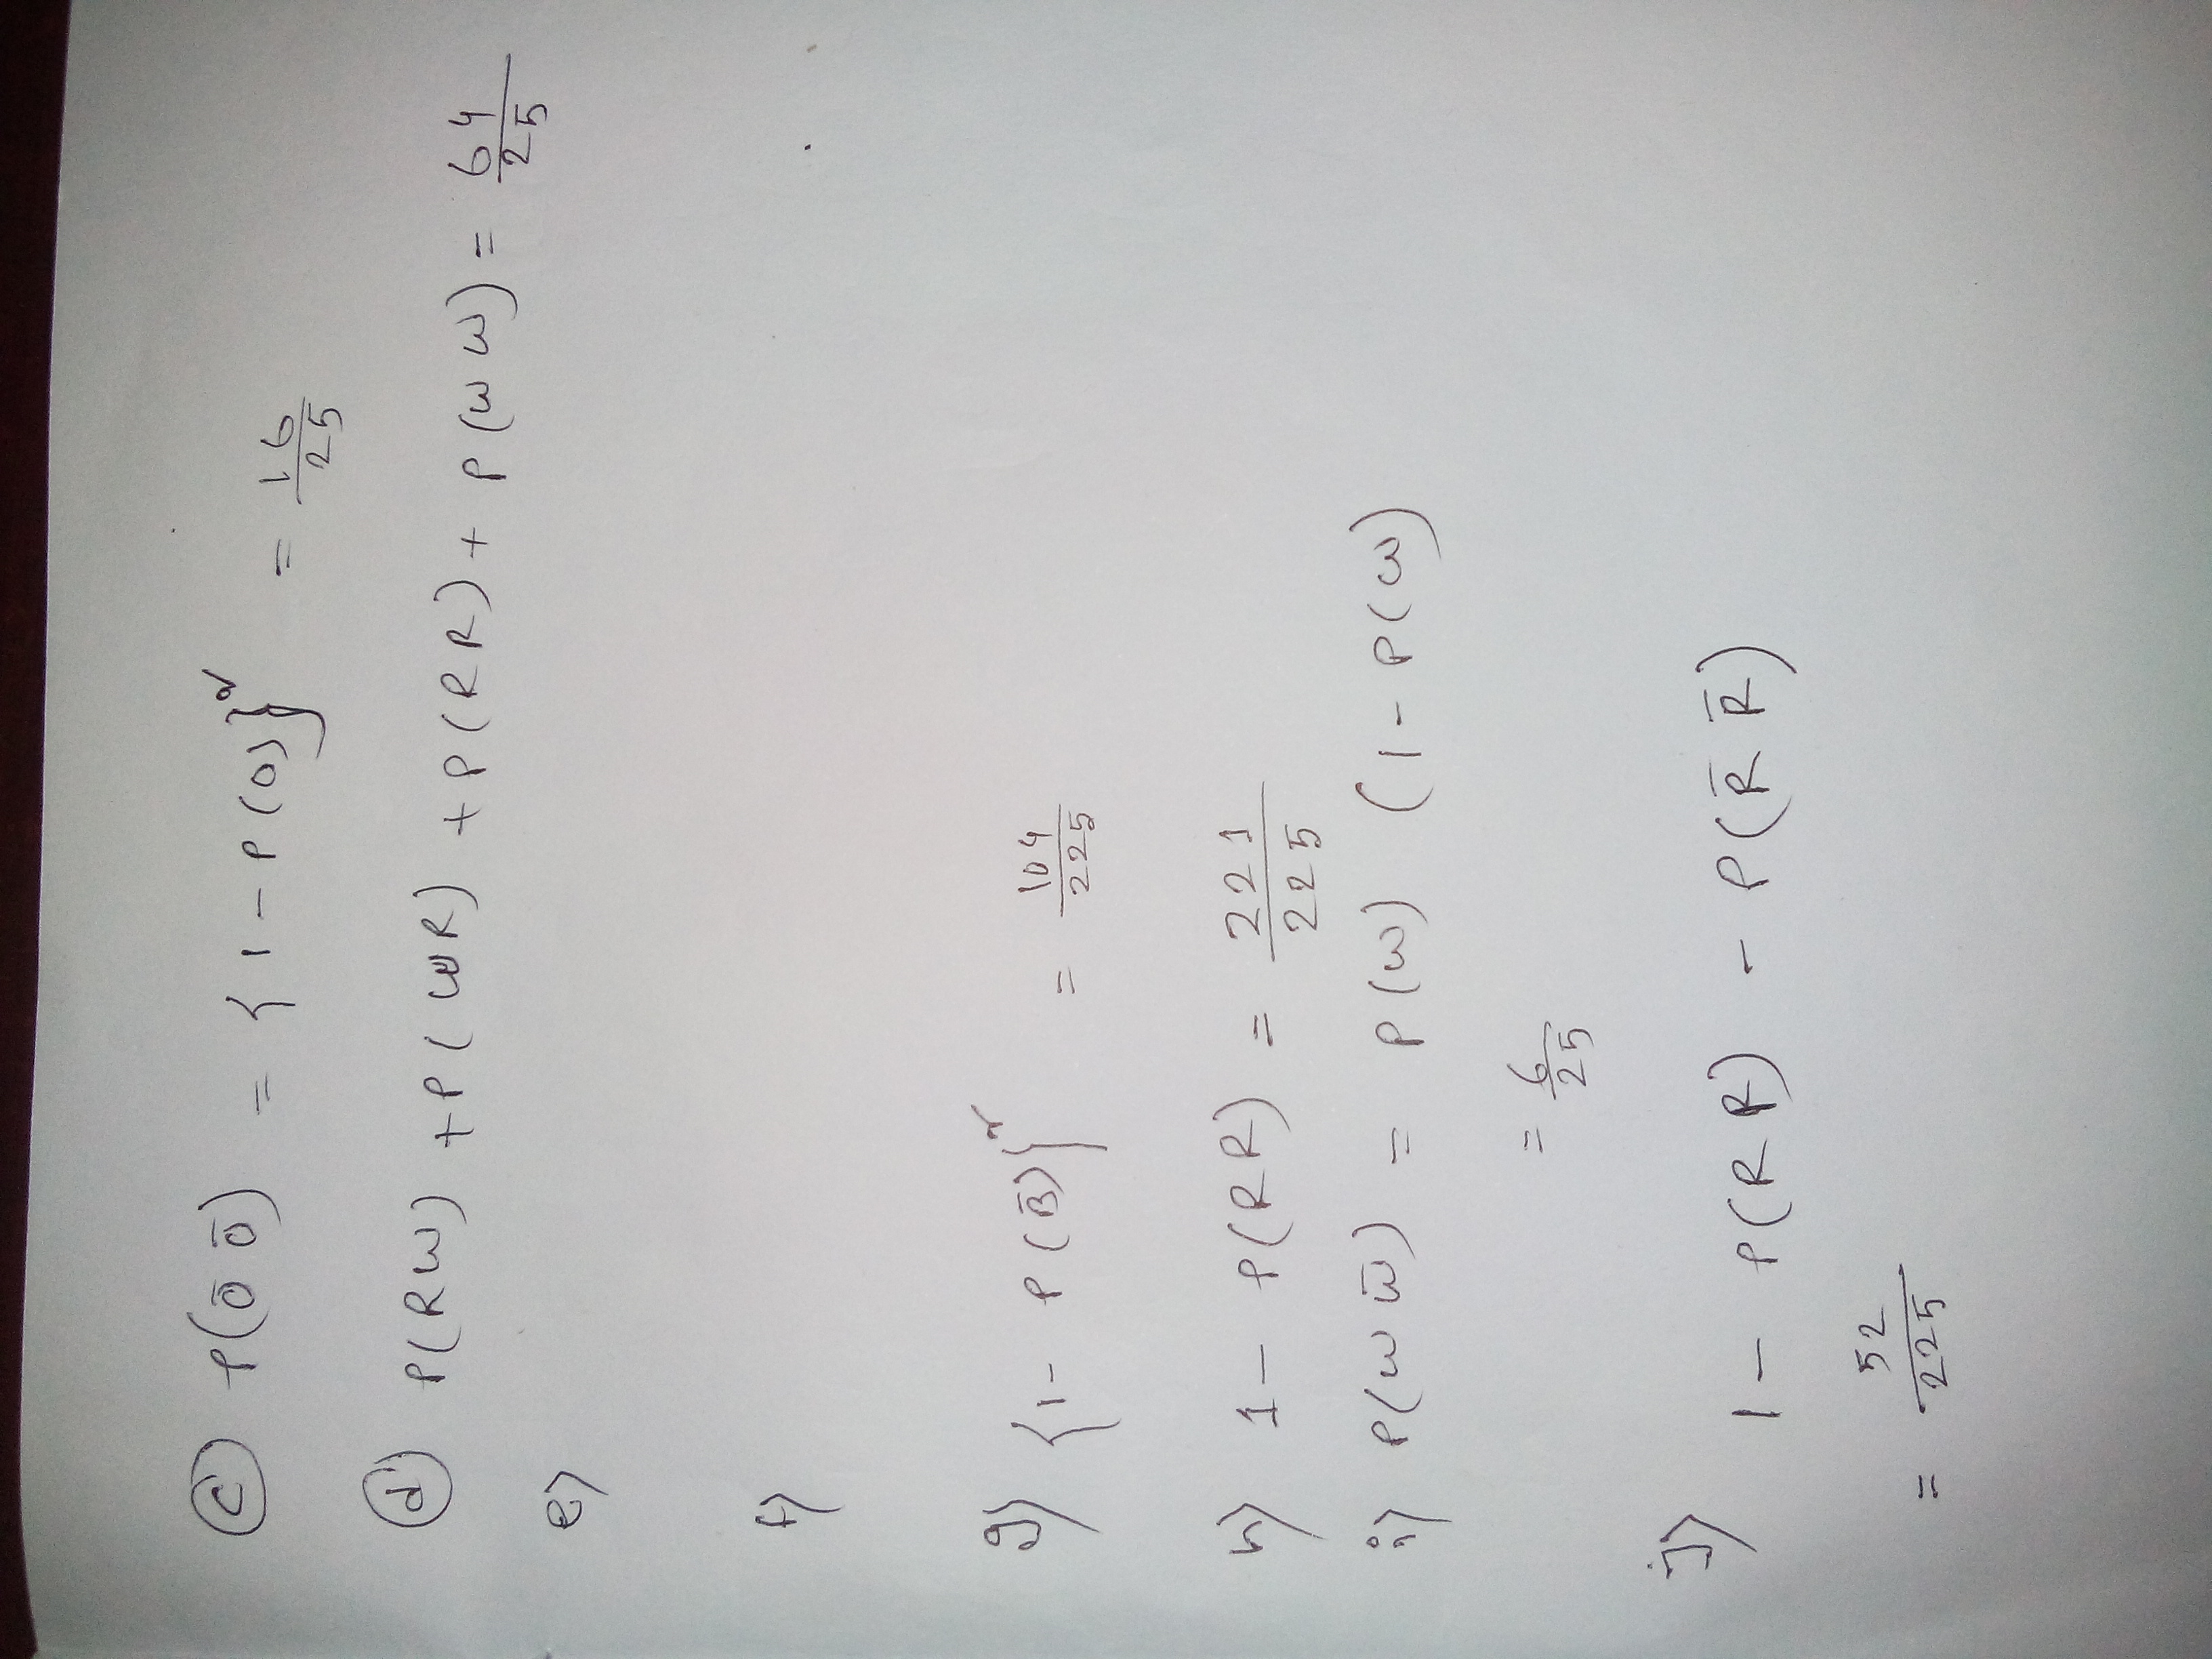 (c) P(Ō Ō) = {1 - P(O)}² = 16/25
(d) P(RW) + P(WR) + P(RR) + P(WW) = 64/25
e)
f)
g) {1 - P(B̄)}² = 104/225
h) 1 - P(RR) = 221/225
i) P(W W̄) = P(W) (1 - P(W)
= 6/25
j) 1 - P(RR) - P(R̄ R̄)
= 52/225